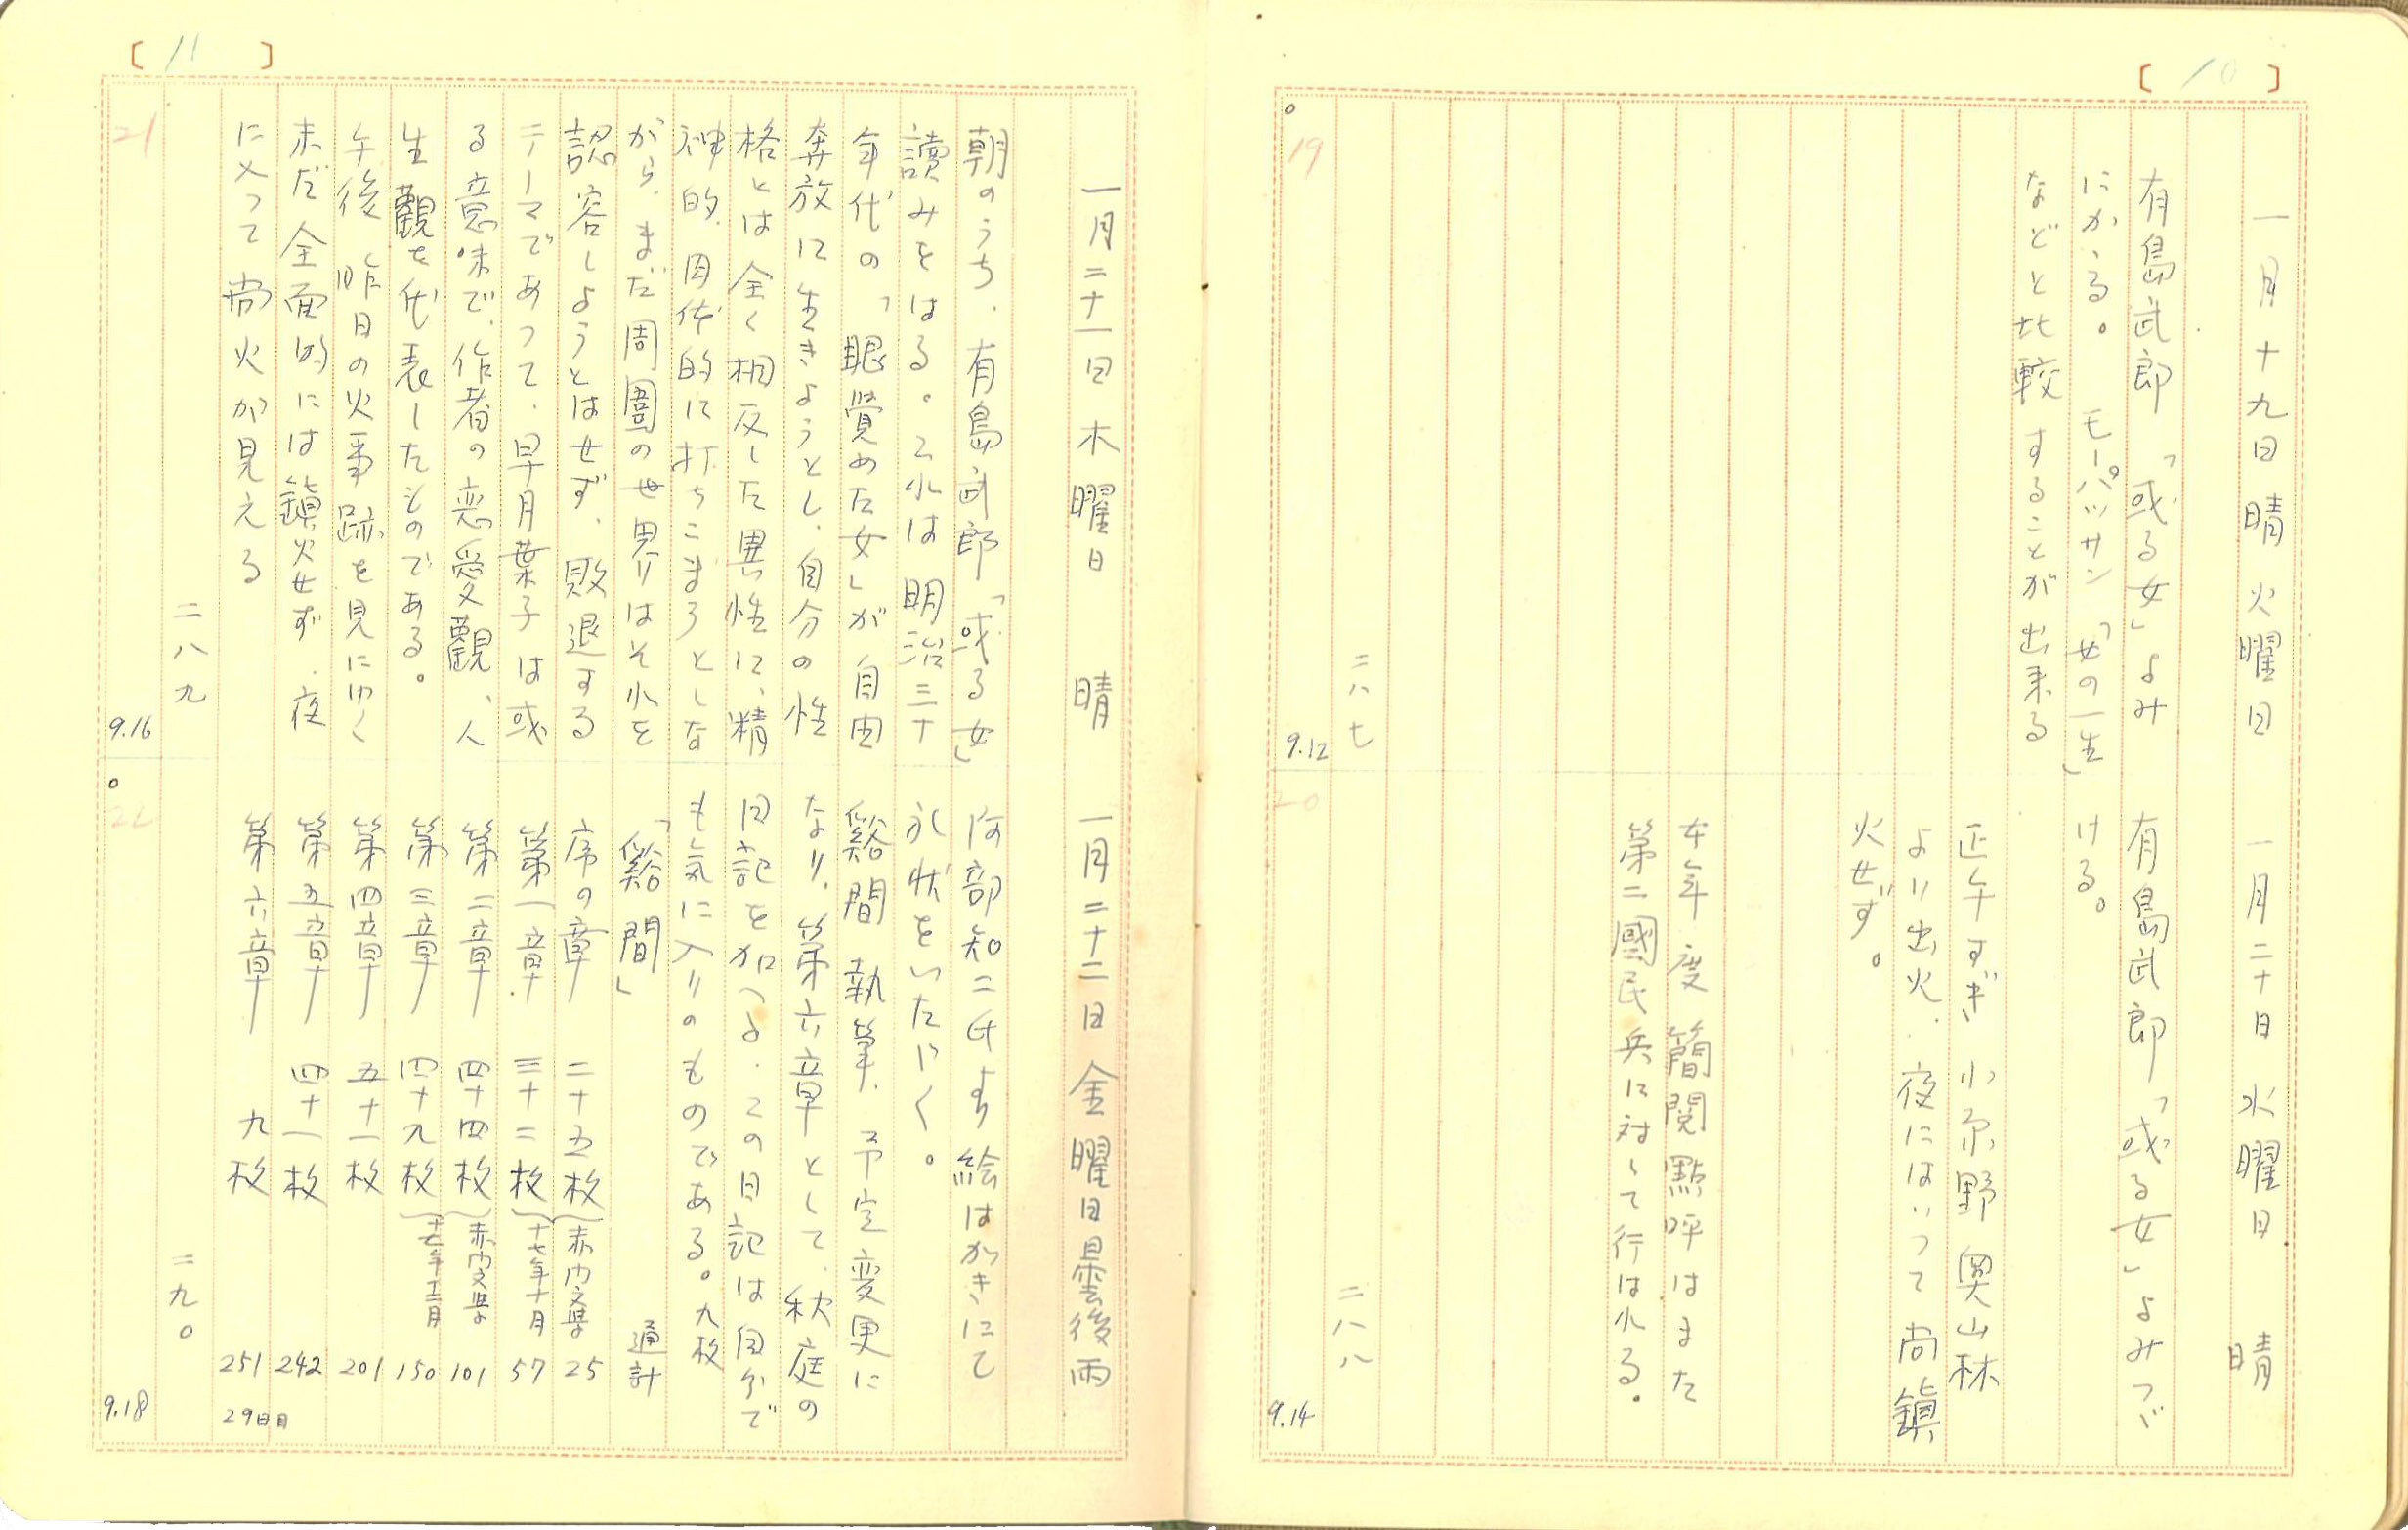 [ 10 ]
一月十九日 晴 火曜日
有島武郎「或る女」よみ
にかゝる。 モーパッサン「女の一生」
などと比較することが出来る
二八七
19
9.12
一月二十日 水曜日 晴
有島武郎「或る女」よみつゞ
ける。
正午すぎ 小原野奥山林
より出火、夜にはいって尚鎮
火せず。
本年度簡閲點呼はまた
第二國民兵に対して行はれる。
二八八
20
9.14
[ 11 ]
一月二十一日 木曜日 晴
朝のうち、有島武郎「或る女」
讀みをはる。これは明治三十
年代の「眼覚めた女」が自由
奔放に生きようとし、自分の性
格とは全く相反した異性に、精
神的、肉体的に打ちこまうとしな
がら、まだ周圍の世界はそれを
認容しようとはせず、敗退する
テーマであって、早月葉子は或
る意味で、作者の恋愛觀、人
生觀を代表したものである。
午後 昨日の火事跡を見にゆく
未だ全面的には鎮火せず、夜
に入って尚火が見える
二八九
21
9.16
一月二十二日 金曜日 曇後雨
阿部知二氏より絵はがきにて
礼状をいたゞく。
谿間 執筆、予定変更に
なり、第六章として、秋庭の
日記を加へる。この日記は自分で
も気に入りのものである。九枚
「谿間」 通計
序の章 二十五枚 赤門文學 25
第一章 三十二枚 十七年十月 57
第二章 四十四枚 赤門文學 101
第三章 四十九枚 十七年十二月 150
第四章 五十一枚 201
第五章 四十一枚 242
第六章 九枚 251 29日目
二九〇
22
9.18